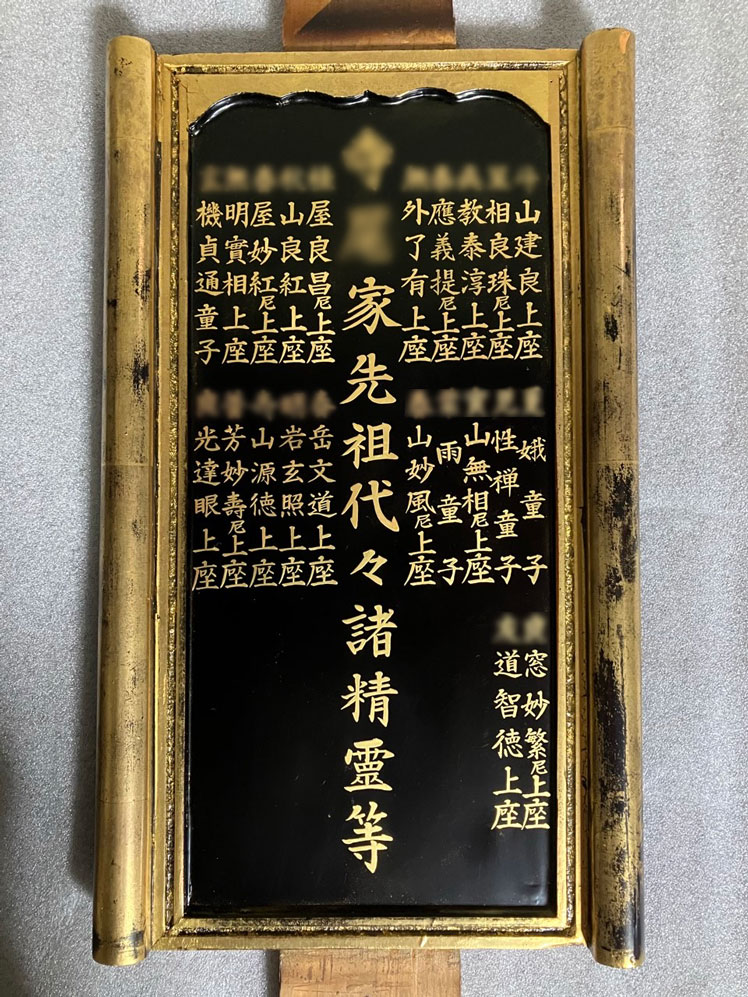 山建良上座
相良珠尼上座
教泰淳上座
應義提尼上座
外了有上座
娥童子
性禅童子
山無相尼上座
雨童子
山妙風尼上座
窓妙繁尼上座
道智徳上座
家先祖代々諸精霊等
屋良昌尼上座
山良紅上座
屋妙紅尼上座
明實相上座
機貞通童子
岳文道上座
岩玄照上座
山源徳上座
芳妙壽尼上座
光達眼上座